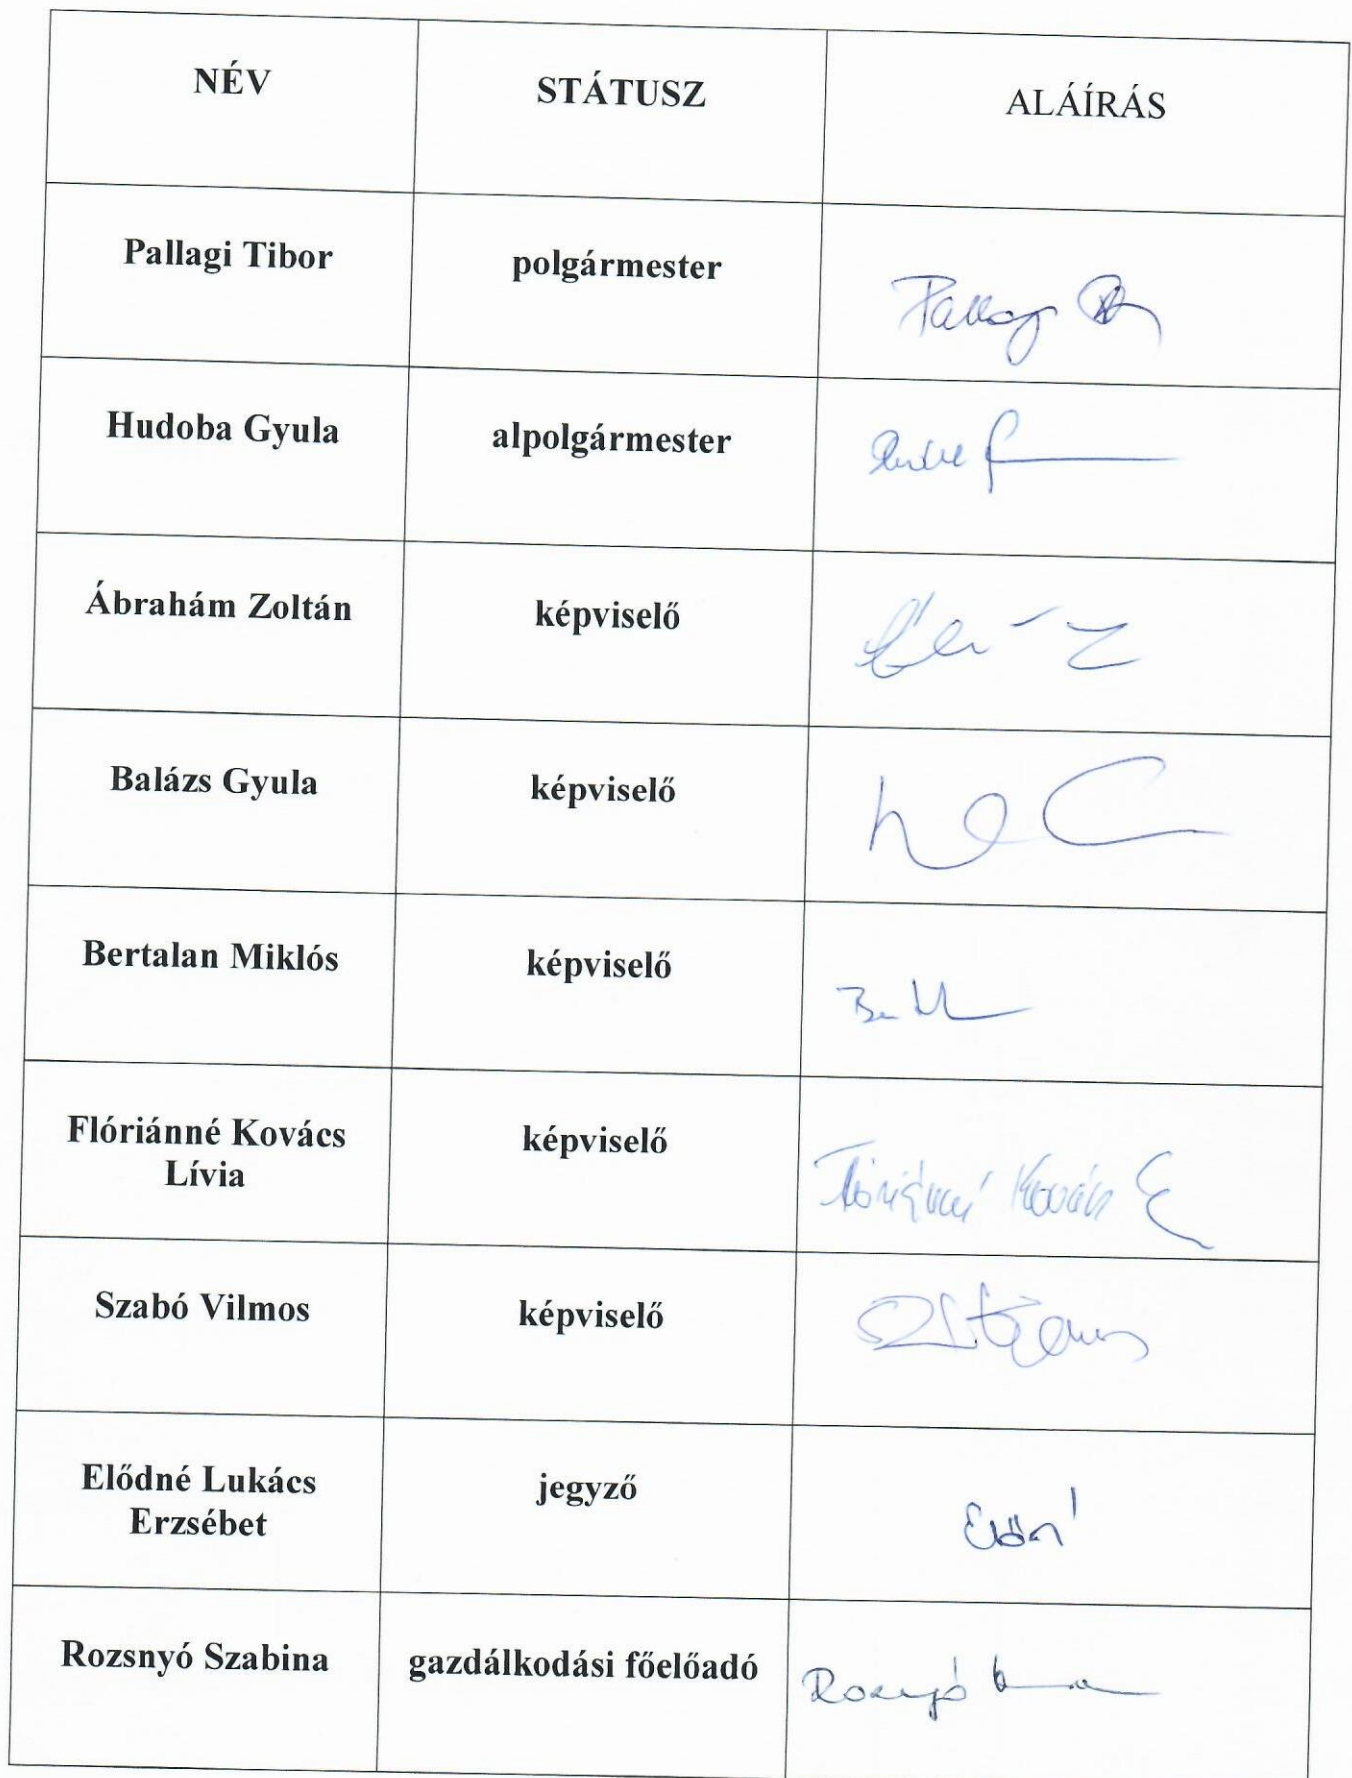 NÉV STÁTUSZ ALÁÍRÁS
Pallagi Tibor polgármester
Pallagi
Hudoba Gyula alpolgármester
Ábrahám Zoltán képviselő
Balázs Gyula képviselő
Bertalan Miklós képviselő
Flóriánné Kovács képviselő
Lívia
Flóriánné Kovács
Szabó Vilmos képviselő
Elődné Lukács jegyző
Erzsébet
Rozsnyó Szabina gazdálkodási főelőadó
Rozsnyó